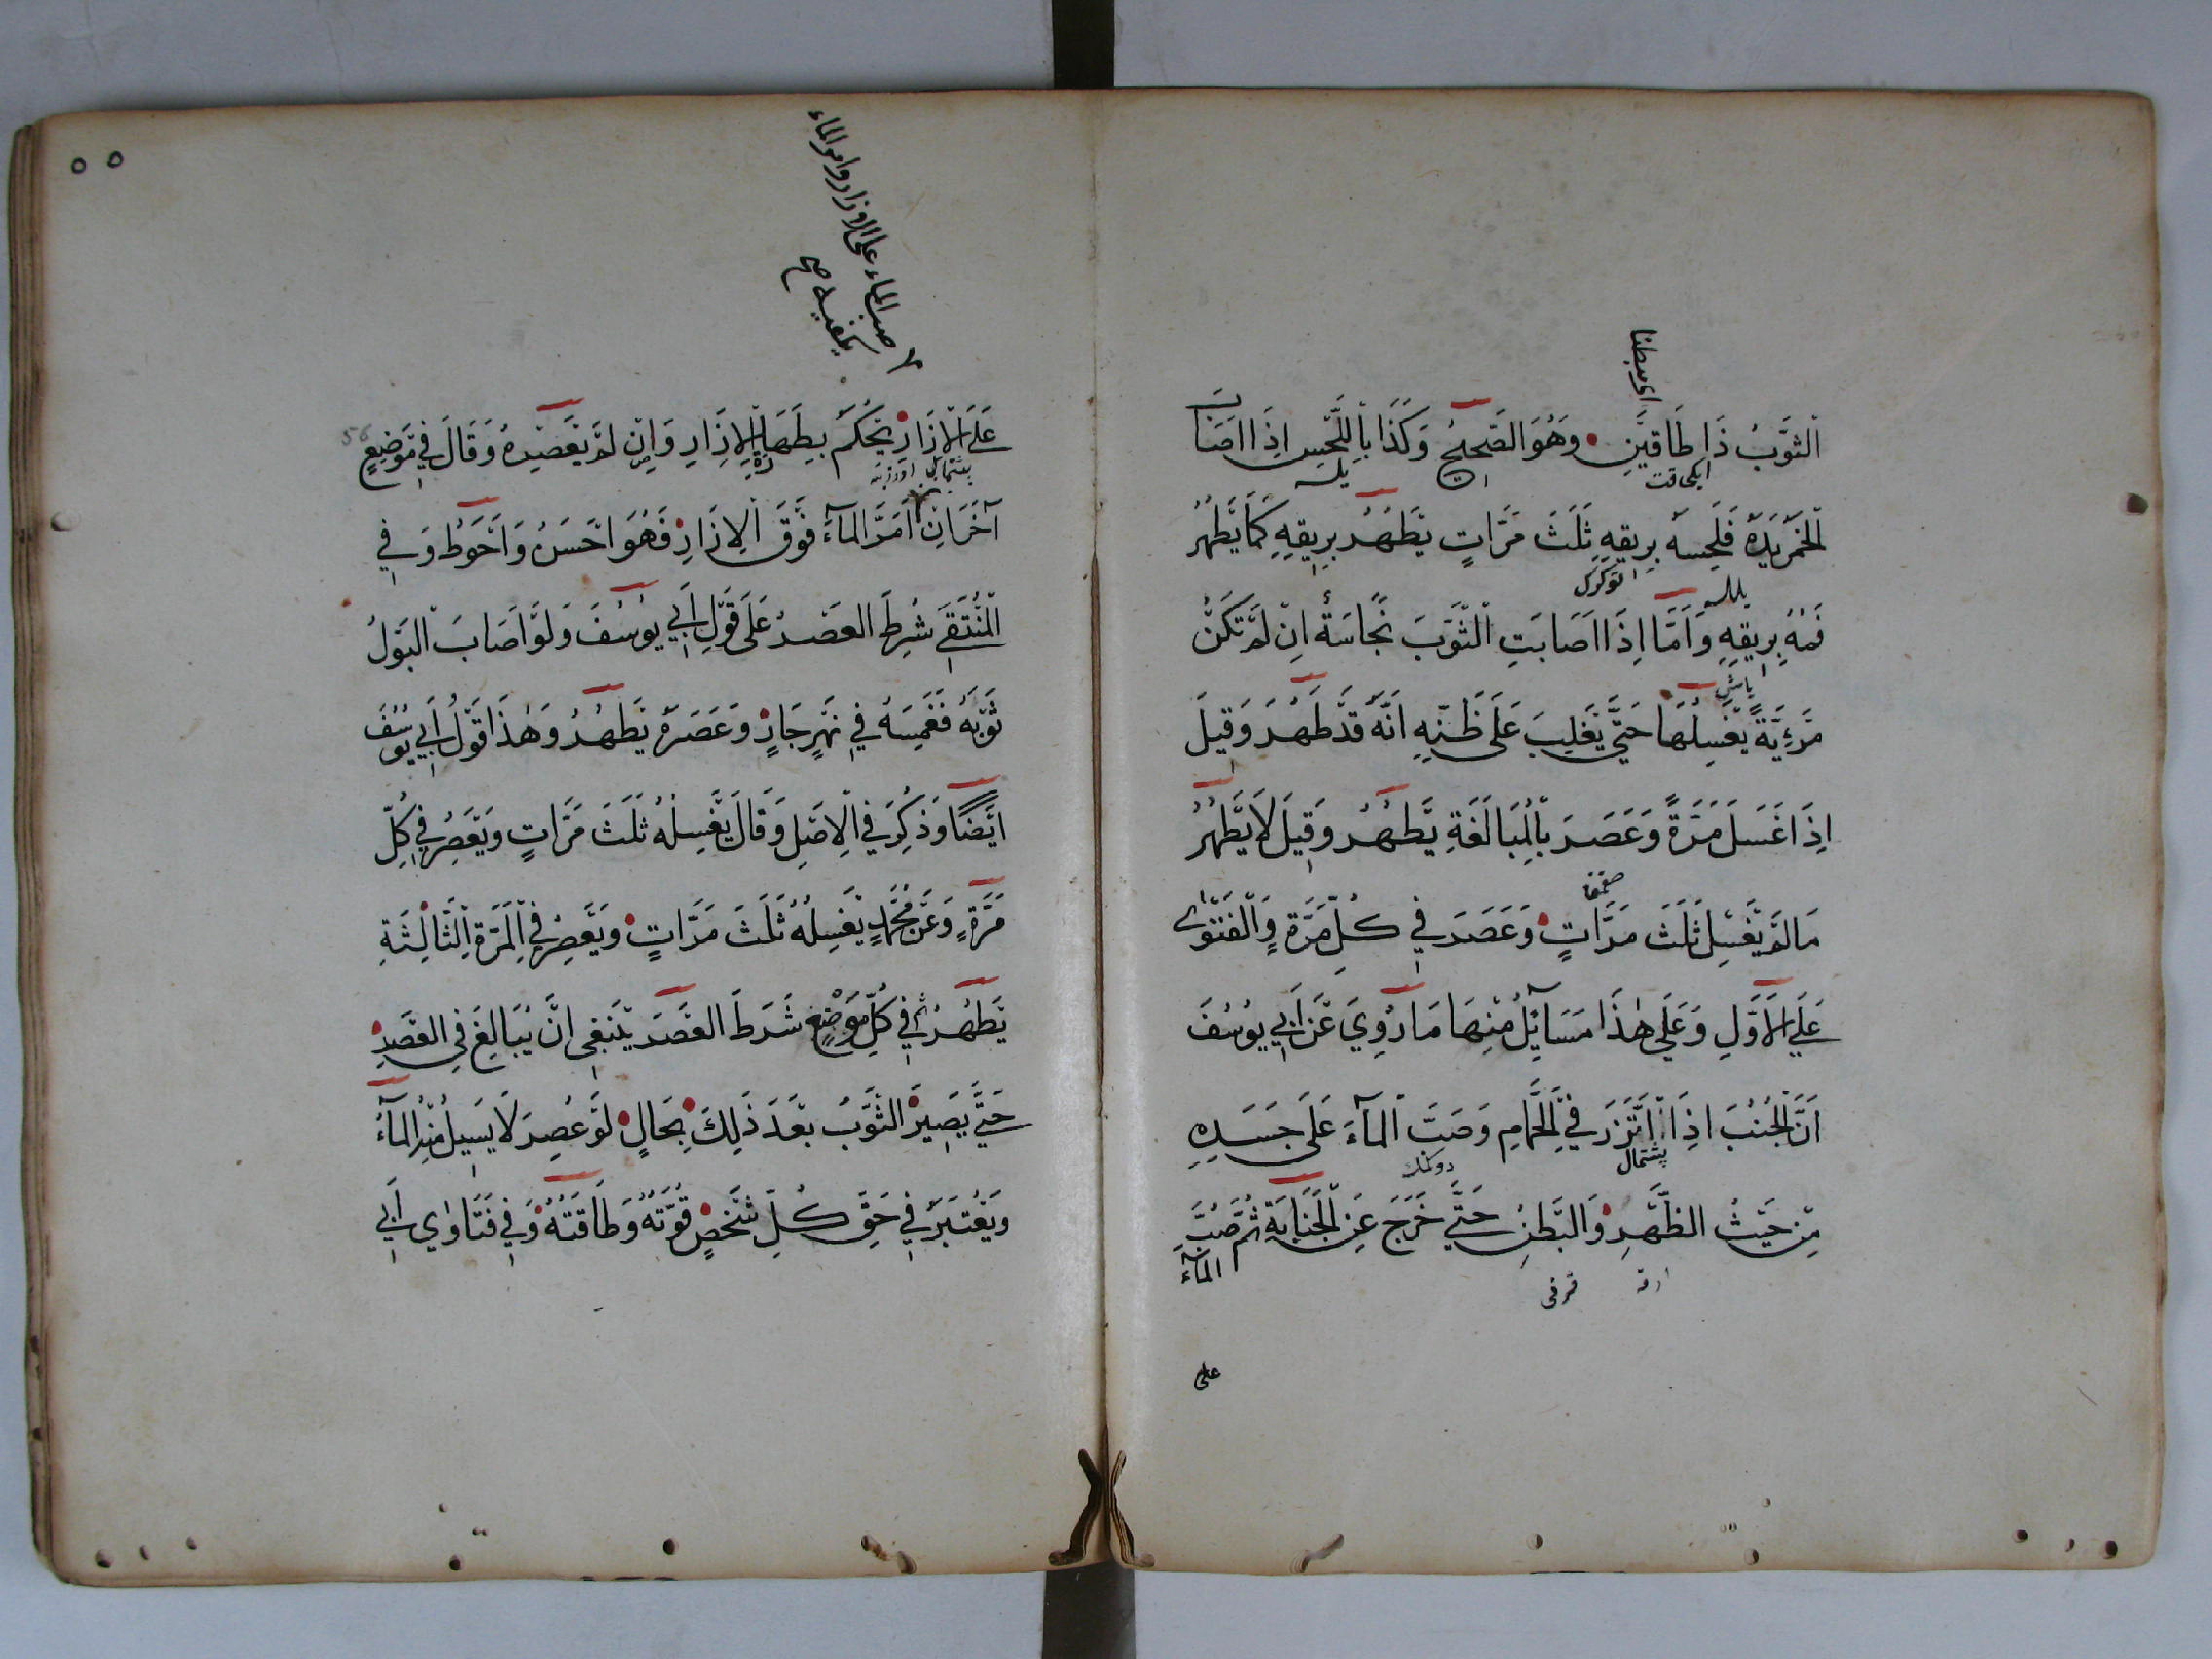 اي مبطنا
اَلثَّوْبُ ذَا طَاقَيْنِ وَهُوَ الصَّحِيحُ وَكَذَا بِاللَّحْسِ اِذَا اَصَابَ
ايكى قات
الْخَمْرُ يَدَهُ فَلَحِسَهُ بِرِيقِهِ ثَلٰثَ مَرَّاتٍ يَطْهُرُ بِرِيقِهِ كَمَا يَطْهُرُ
فَمُهُ بِرِيقِهِ وَاَمَّا اِذَا اَصَابَتِ الثَّوْبَ نَجَاسَةٌ اِنْ لَمْ تَكُنْ
مَرْئِيَّةً يَغْسِلُهَا حَتَّى يَغْلِبَ عَلَى ظَنِّهِ اَنَّهُ قَدْ طَهُرَ وَقِيلَ
اِذَا غَسَلَ مَرَّةً وَعَصَرَ بِالْمُبَالَغَةِ يَطْهُرُ وَقِيلَ لَا يَطْهُرُ
مَا لَمْ يَغْسِلْ ثَلٰثَ مَرَّاتٍ وَعَصَرَ فِي كُلِّ مَرَّةٍ وَالْفَتْوٰى
عَلَى الْاَوَّلِ وَعَلَى هٰذَا مَسَائِلُ مِنْهَا مَا رُوِيَ عَنْ اَبِي يُوسُفَ
اَنَّ الْجُنُبَ اِذَا اتَّزَرَ فِي الْحَمَّامِ وَصَبَّ الْمَآءَ عَلَى جَسَدِهِ
پشتمال
دوكمك
مِنْ حَيْثُ الظَّهْرِ وَالْبَطْنِ حَتَّى خَرَجَ عَنِ الْجَنَابَةِ ثُمَّ صَبَّ
الْمَآءَ
على
٥٥
صب الماء على الازار وامر الماء
يكفيه صح
عَلَى الْاِزَارِ يُحْكَمُ بِطَهَارَةِ الْاِزَارِ وَاِنْ لَمْ يَعْصِرْهُ وَقَالَ فِي مَوْضِعٍ
56
پشتمال اوزرينه
آخَرَ اِنْ اَمَرَّ الْمَآءَ فَوْقَ الْاِزَارِ فَهُوَ اَحْسَنُ وَاَحْوَطُ وَفِي
الْمُنْتَقَى شُرِطَ الْعَصْرُ عَلَى قَوْلِ اَبِي يُوسُفَ وَلَوْ اَصَابَ الْبَوْلُ
ثَوْبَهُ فَغَمَسَهُ فِي نَهْرٍ جَارٍ وَعَصَرَهُ يَطْهُرُ وَهٰذَا قَوْلُ اَبِي يُوسُفَ
اَيْضًا وَذُكِرَ فِي الْاَصْلِ وَقَالَ يَغْسِلُهُ ثَلٰثَ مَرَّاتٍ وَيَعْصِرُ فِي كُلِّ
مَرَّةٍ وَعَنْ مُحَمَّدٍ يَغْسِلُهُ ثَلٰثَ مَرَّاتٍ وَيَعْصِرُ فِي الْمَرَّةِ الثَّالِثَةِ
يَطْهُرُ ثم فِي كُلِّ مَوْضِعٍ شَرَطَ الْعَصْرَ يَنْبَغِي اَنْ يُبَالِغَ فِي الْعَصْرِ
حَتَّى يَصِيرَ الثَّوْبُ بَعْدَ ذٰلِكَ بِحَالٍ لَوْ عُصِرَ لَا يَسِيلُ مِنْهُ الْمَآءُ
وَيُعْتَبَرُ فِي حَقِّ كُلِّ شَخْصٍ قُوَّتُهُ وَطَاقَتُهُ وَفِي فَتَاوٰي اَبِي